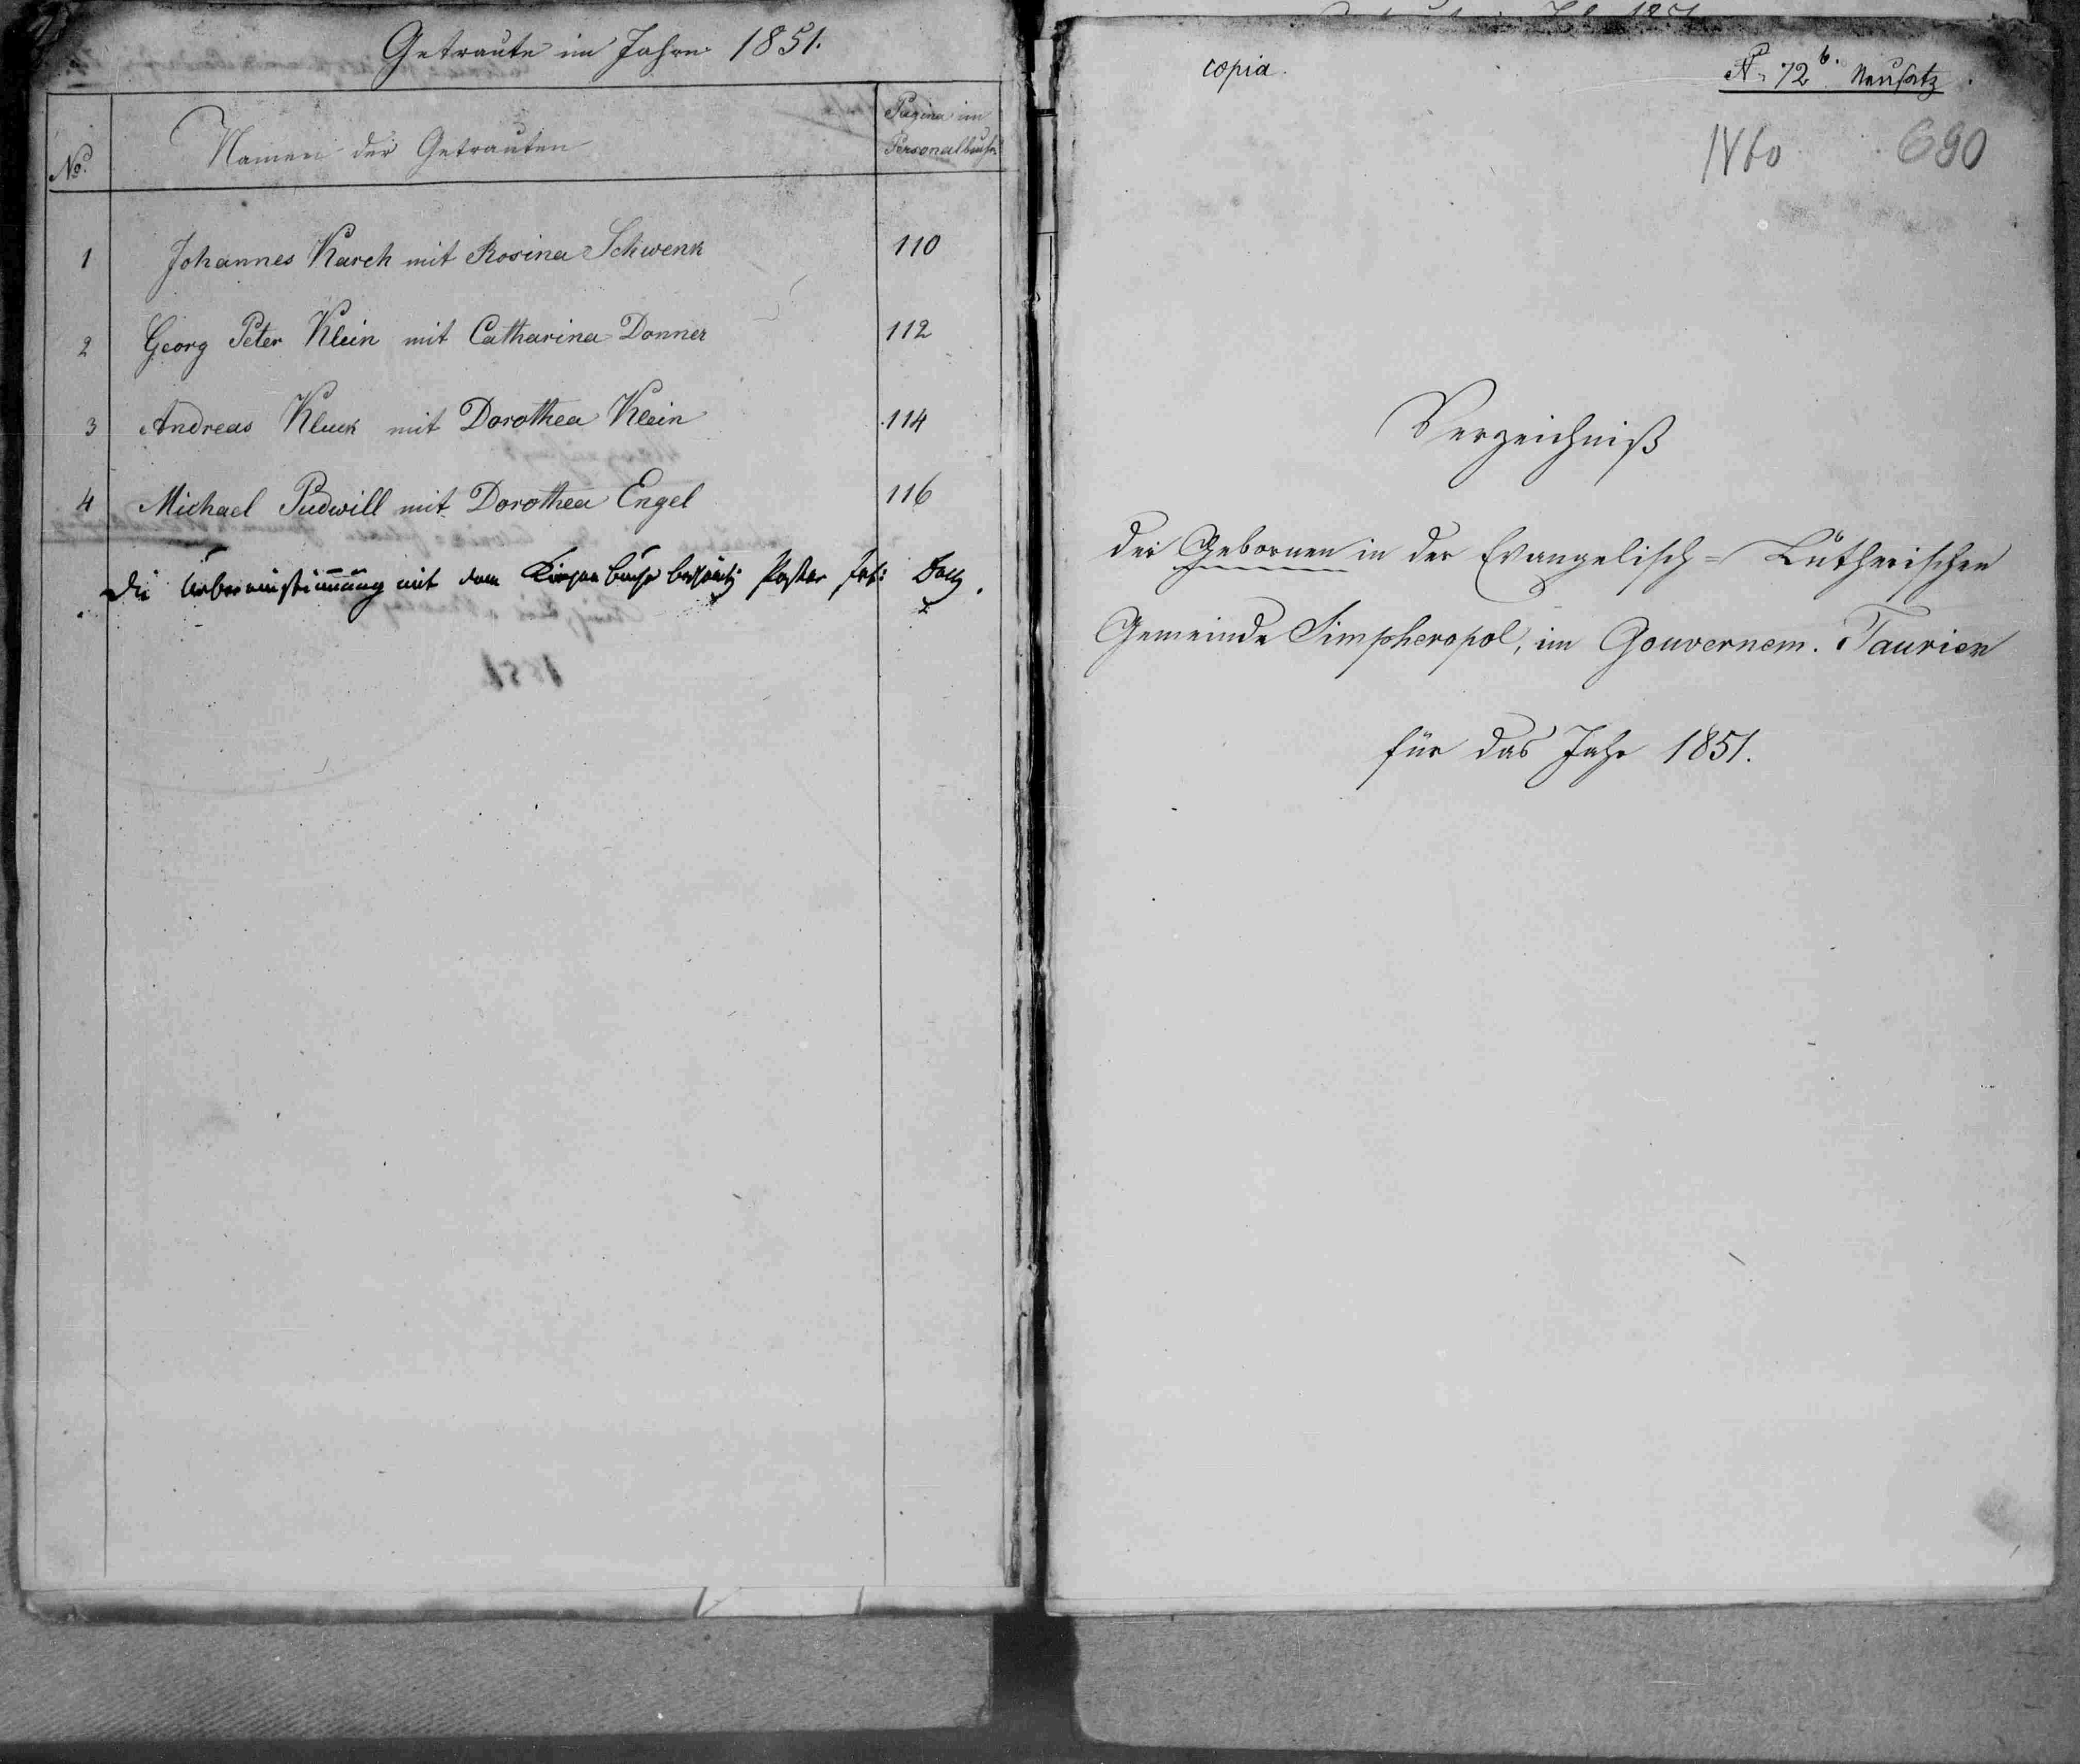 Getraute im Jahre 1851.
No. Namen der Getrauten Pagina im
Personalbuche
1 Johannes Karch mit Rosina Schwenk 110
2 Georg Peter Klein mit Catharina Donner 112
3 Andreas Kluck mit Dorothea Klein 114
4 Michael Pudwill mit Dorothea Engel 116
Die Uebereinstimmung mit dem Kirchenbuche bescheinigt Pastor
1851
copia.
N. 72 b. Neusatz
690
Verzeichniß
der Gebornen in der Evangelisch= Lutherischen
Gemeinde Simpheropol, im Gouvernem. Taurien
für das Jahr 1851.